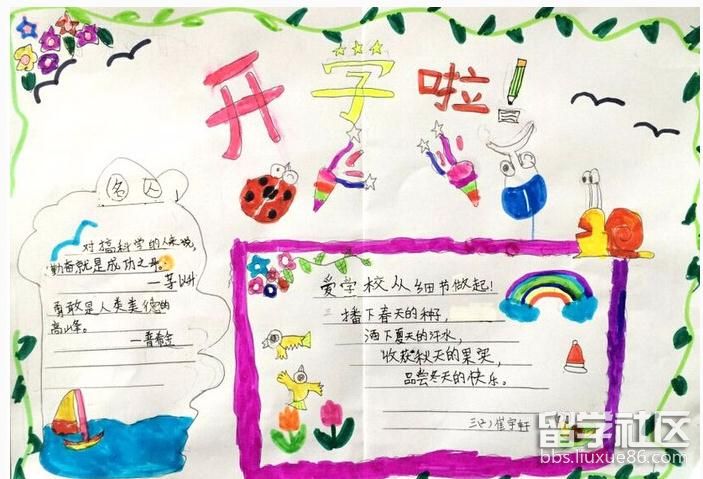 开学啦!
名人
对搞科学的人来说,
勤奋就是成功之母。
勇敢是人类美德的
高山峰。
—普希金
爱学校从细节做起!
播下春天的种子,
洒下夏天的汗水,
收获秋天的果实,
品尝冬天的快乐。
崔宇轩
留学社区
bbs.liuxue86.com